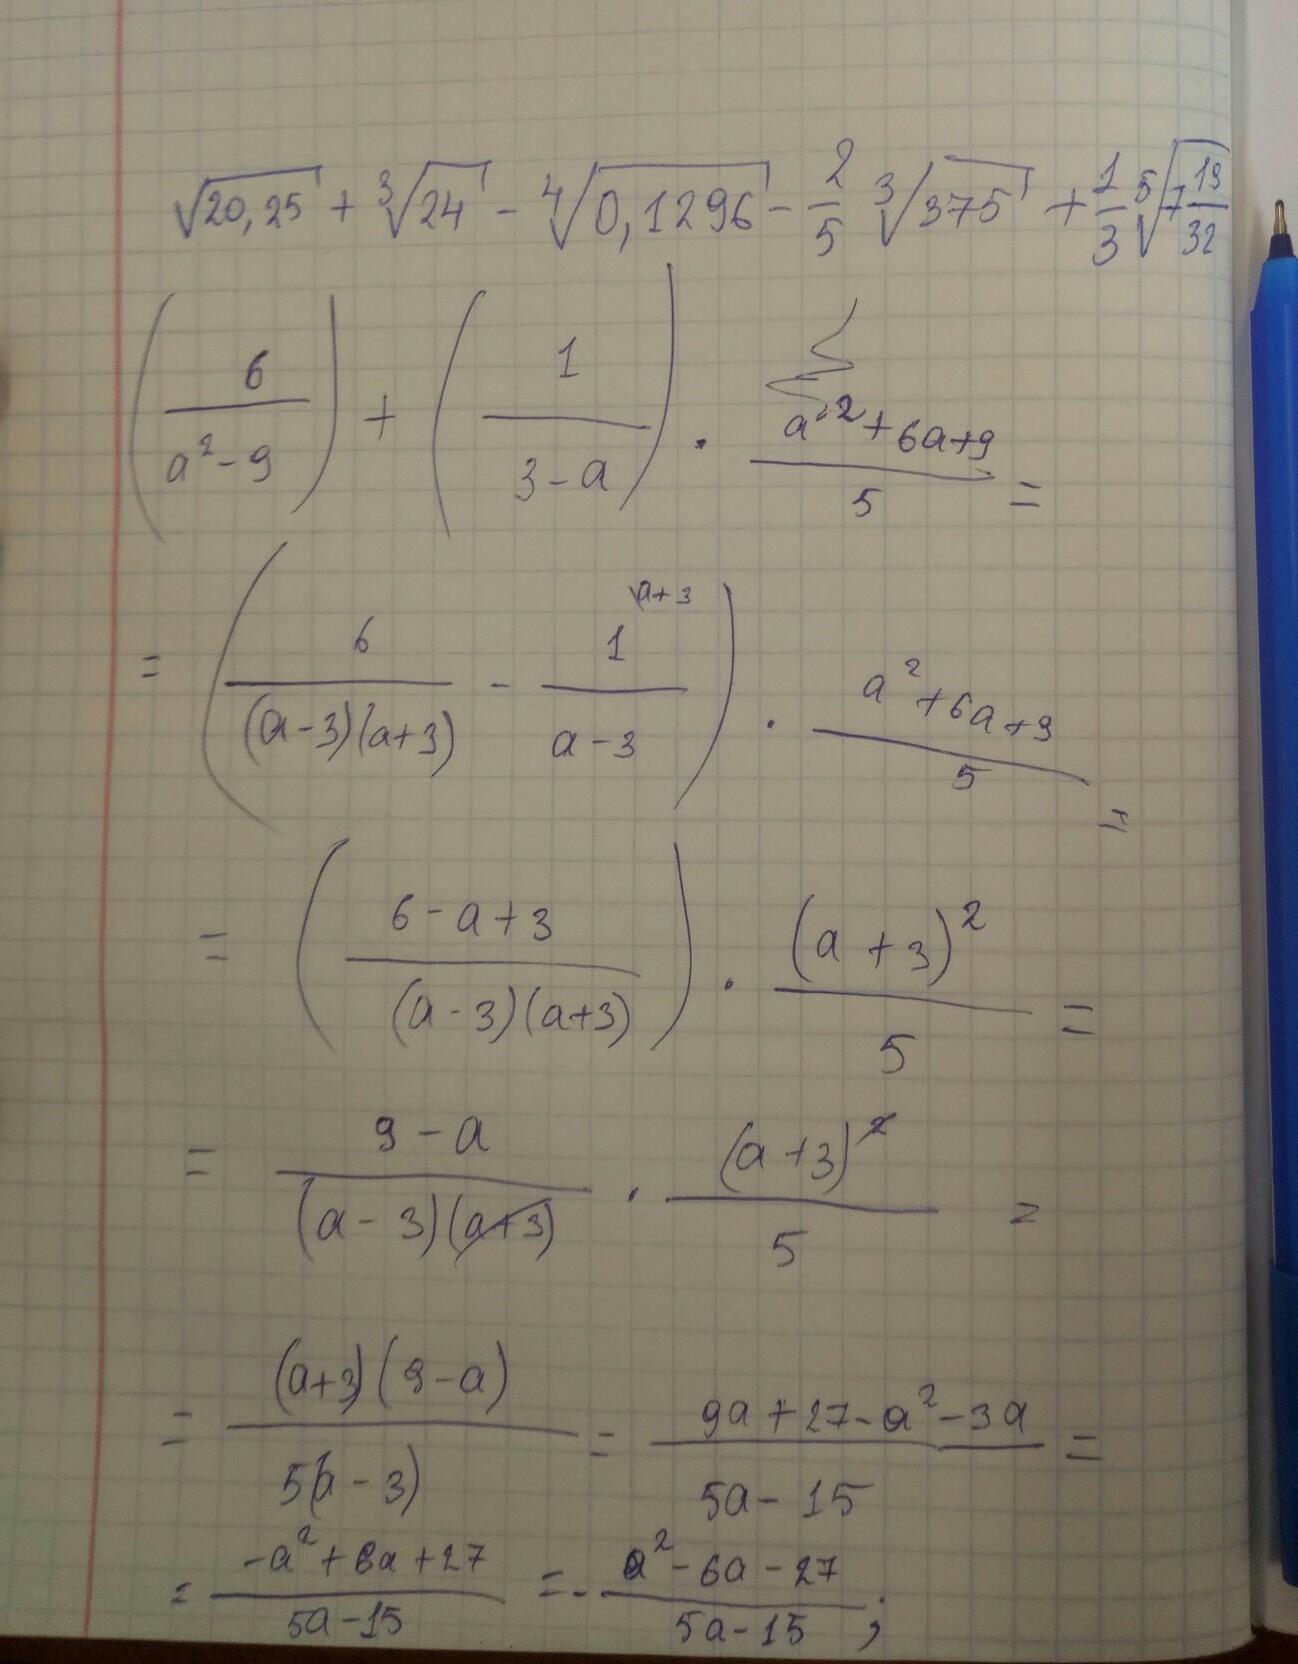 √20,25 + ³√24 - ⁴√0,1296 - 2/5 ³√375 + 1/3 ⁵√7 19/32
(6/(a²-9)) + (1/(3-a)) · (a²+6a+9)/5 =
= (6/((a-3)(a+3)) - 1/(a-3) \a+3) · (a²+6a+9)/5 =
= ((6-a+3)/((a-3)(a+3))) · (a+3)²/5 =
= (9-a)/((a-3)(a+3)) · (a+3)²/5 =
= (a+3)(9-a)/(5(a-3)) = (9a+27-a²-3a)/(5a-15) =
= (-a²+6a+27)/(5a-15) = - (a²-6a-27)/(5a-15);